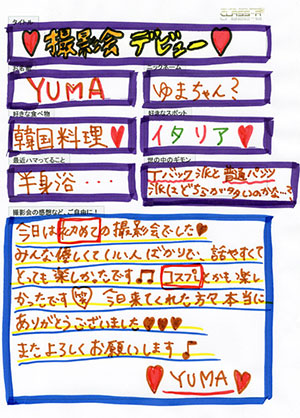 タイトル
♥撮影会 デビュー♥
お名前
ニックネーム
YUMA
ゆまちゃん?
好きな食べ物
好きなスポット
韓国料理♥
イタリア♥
最近ハマってること
世の中のギモン
半身浴・・・
Tバック派と普通パンツ
派はどちらが多いのかな…?
撮影会の感想など、ご自由に!
今日は初めての撮影会でした♥
みんな優しくていい人ばかりで、話やすくて
とっても楽しかったです♫ コスプレとかも楽し
かったです 今日来てくれた方々本当に
ありがとうございました♥♥♥
またよろしくお願いします♪
♥YUMA♥